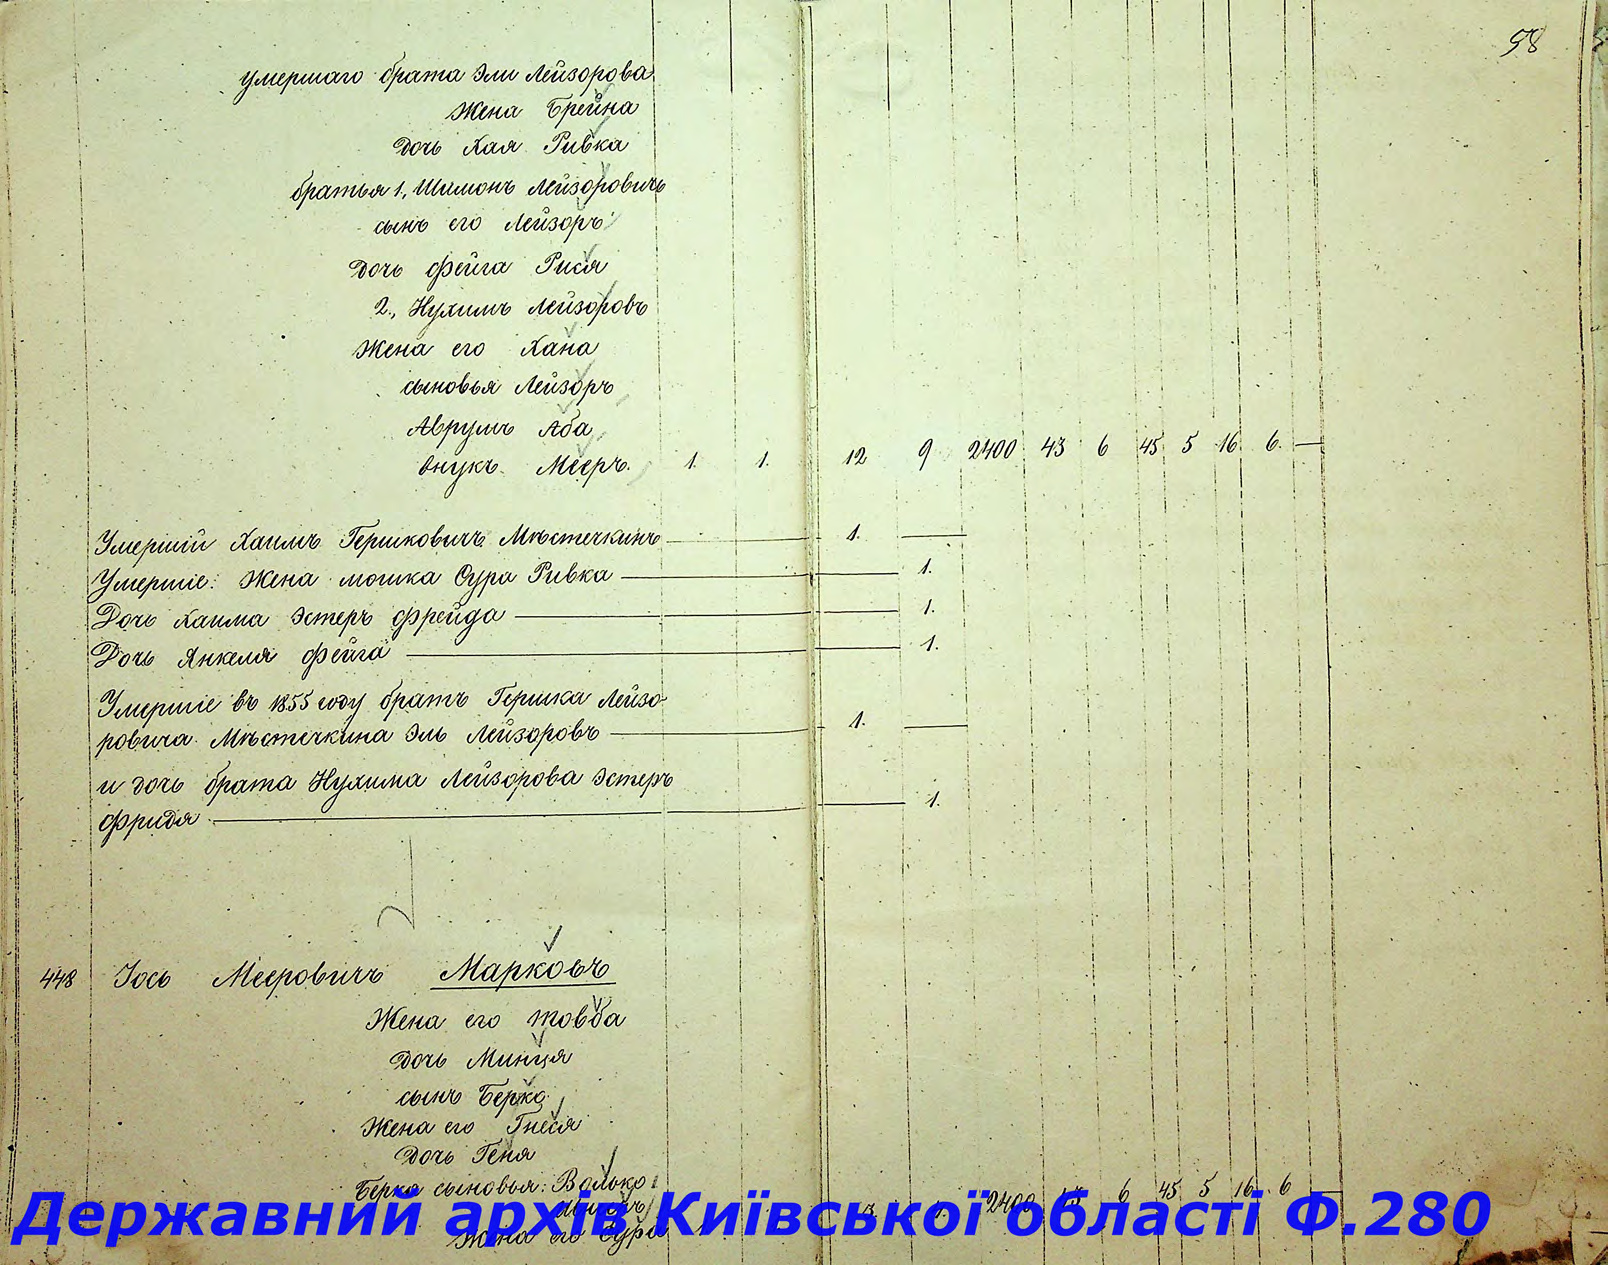 58
умершаго брата Эли Лейзорова
Жена Брейна
Дочь Хая Ривка
братья 1., Шимонъ Лейзоровичъ
сынъ его Лейзоръ
Дочь Фейга Рися
2., Нухимъ Лейзоровъ
Жена его Хана
сыновья Лейзоръ
Аврумъ Аба
внукъ Мееръ. 1. 1. 12 9 2400 43 6 45 5 16 6. —
Умершій Хаимъ Гершковичъ Мѣстечкинъ — 1. —
Умершіе: Жена мошка Сура Ривка — 1.
Дочь Хаима Эстеръ Фрейда — 1.
Дочь Янкеля Фейга — 1.
Умершіе въ 1855 году братъ Гершка Лейзо-
ровича Мѣстечкина Эль Лейзоровъ — 1. —
и дочь брата Нухима Лейзорова Эстеръ
Фридя — 1.
448 Іось Мееровичъ Марковъ
Жена его Товба
Дочь Минця
сынъ Берко
Жена его Гнеся
Дочь Геня
Берка сыновья: Волько
2400 6 45 5 16 6
Жена его Сура
Державний архів Київської області Ф.280